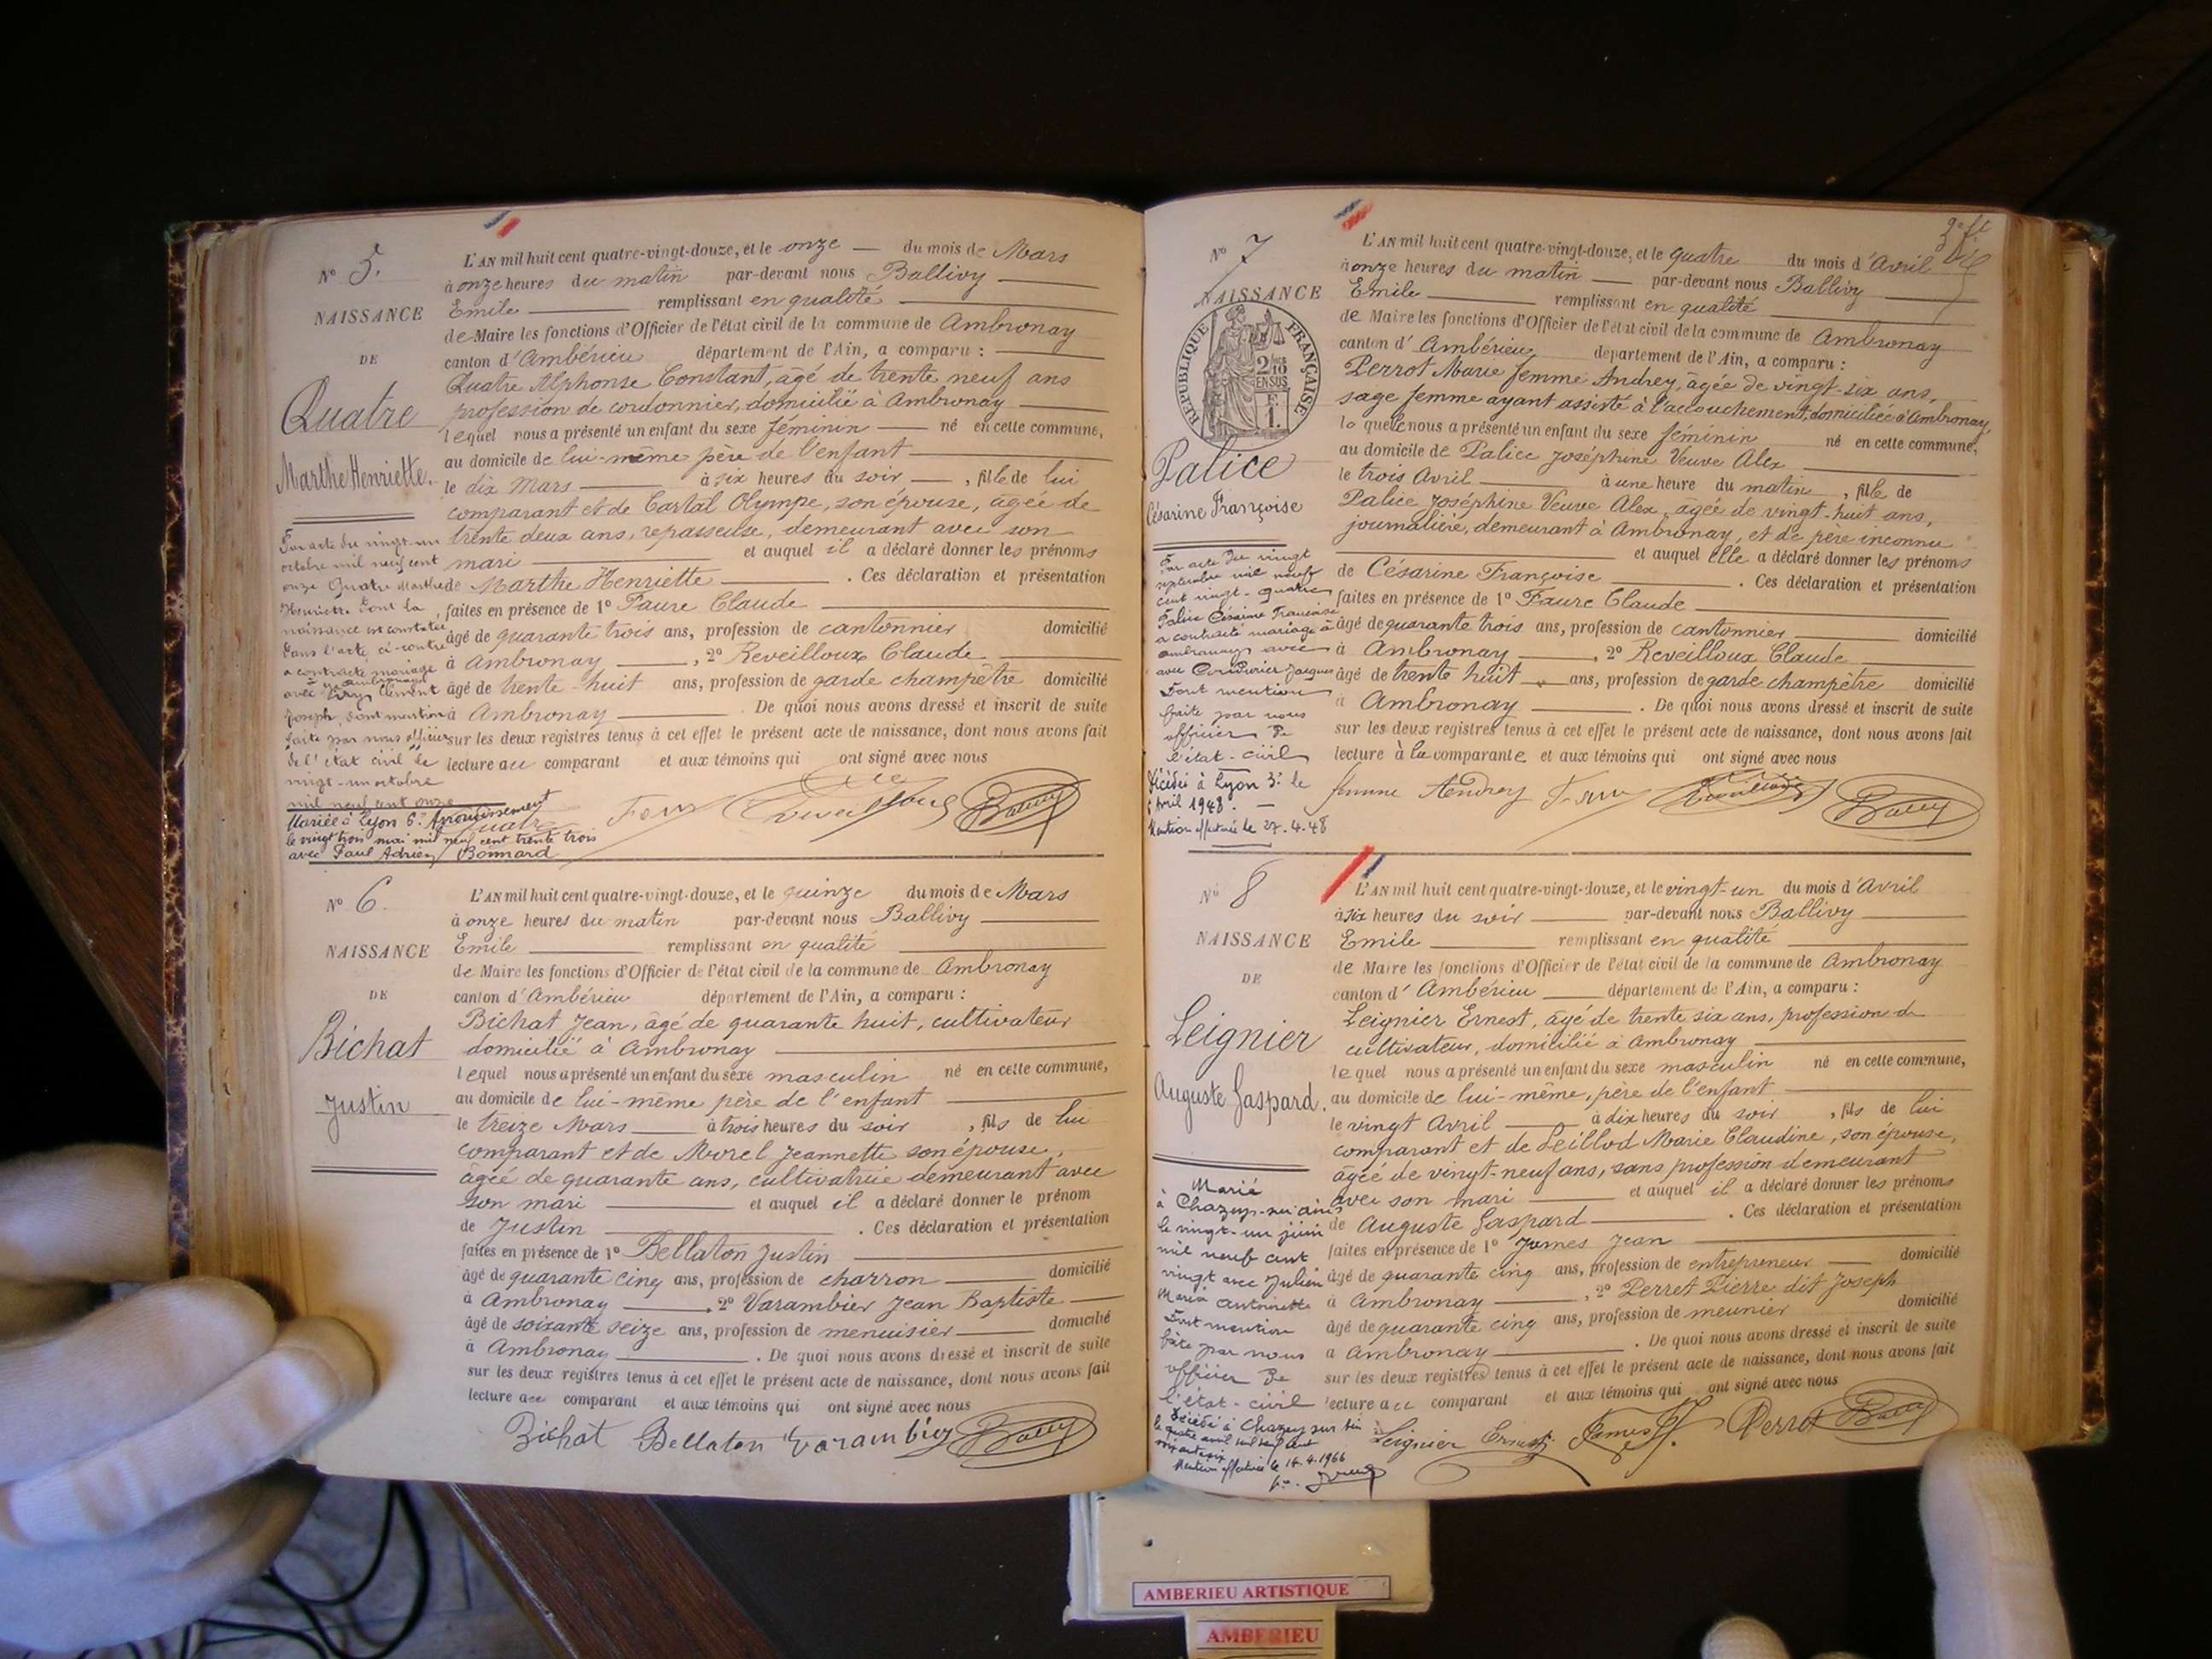 N° 5.
NAISSANCE
DE
Quatre
Marthe Henriette.
L'AN mil huit cent quatre-vingt-douze, et le onze du mois de Mars
à onze heures du matin par-devant nous Ballivy
Emile remplissant en qualité
de Maire les fonctions d'Officier de l'état civil de la commune de Ambronay
canton d'Ambérieu département de l'Ain, a comparu :
Quatre Alphonse Constant, âgé de trente neuf ans
profession de cordonnier, domicilié à Ambronay
lequel nous a présenté un enfant du sexe féminin né en cette commune,
au domicile de lui-même père de l'enfant
le dix Mars à six heures du soir, fille de lui
comparant et de Cartal Olympe, son épouse, âgée de
trente deux ans, repasseuse, demeurant avec son
mari et auquel il a déclaré donner les prénoms
de Marthe Henriette. Ces déclaration et présentation
faites en présence de 1° Faure Claude
âgé de quarante trois ans, profession de cantonnier domicilié
à Ambronay, 2° Reveilloux Claude
âgé de trente-huit ans, profession de garde champêtre domicilié
à Ambronay. De quoi nous avons dressé et inscrit de suite
sur les deux registres tenus à cet effet le présent acte de naissance, dont nous avons fait
lecture au comparant et aux témoins qui ont signé avec nous
Par acte du vingt-un
octobre mil neuf cent
onze Quatre Marthe
Henriette dont la
naissance est constatée
dans l'acte ci-contre
a contracté mariage
à Ambronay
avec Clément
Joseph, dont mention
faite par nous officier
de l'état civil le
vingt-un octobre
mil neuf cent onze
Mariée à Lyon 6e Arrondissement
le vingt trois mai mil neuf cent trente trois
avec Paul Adrien Bonnard
N° 6.
NAISSANCE
DE
Bichat
Justin
L'AN mil huit cent quatre-vingt-douze, et le quinze du mois de Mars
à onze heures du matin par-devant nous Ballivy
Emile remplissant en qualité
de Maire les fonctions d'Officier de l'état civil de la commune de Ambronay
canton d'Ambérieu département de l'Ain, a comparu :
Bichat Jean, âgé de quarante huit, cultivateur
domicilié à Ambronay
lequel nous a présenté un enfant du sexe masculin né en cette commune,
au domicile de lui-même père de l'enfant
le treize Mars à trois heures du soir, fils de lui
comparant et de Morel Jeannette son épouse,
âgée de quarante ans, cultivatrice demeurant avec
son mari et auquel il a déclaré donner le prénom
de Justin. Ces déclaration et présentation
faites en présence de 1° Bellaton Justin
âgé de quarante cinq ans, profession de charron domicilié
à Ambronay, 2° Varambier Jean Baptiste
âgé de soixante seize ans, profession de menuisier domicilié
à Ambronay. De quoi nous avons dressé et inscrit de suite
sur les deux registres tenus à cet effet le présent acte de naissance, dont nous avons fait
lecture au comparant et aux témoins qui ont signé avec nous
Bichat Bellaton Varambier Bally
N° 7
NAISSANCE
RÉPUBLIQUE FRANÇAISE
2/10 EN SUS
F. 1.
Palice
Césarine Françoise
L'AN mil huit cent quatre-vingt-douze, et le quatre du mois d'Avril
à onze heures du matin par-devant nous Ballivy
Emile remplissant en qualité
de Maire les fonctions d'Officier de l'état civil de la commune de Ambronay
canton d'Ambérieu département de l'Ain, a comparu :
Perrot Marie femme Andrey, âgée de vingt-six ans,
sage femme ayant assisté à l'accouchement, domiciliée à Ambronay,
laquelle nous a présenté un enfant du sexe féminin né en cette commune,
au domicile de Palice Joséphine Veuve Alex
le trois Avril à une heure du matin, fille de
Palice Joséphine Veuve Alex, âgée de vingt-huit ans,
journalière, demeurant à Ambronay, et de père inconnu
et auquel elle a déclaré donner les prénoms
de Césarine Françoise. Ces déclaration et présentation
faites en présence de 1° Faure Claude
âgé de quarante trois ans, profession de cantonnier domicilié
à Ambronay, 2° Reveilloux Claude
âgé de trente huit ans, profession de garde champêtre domicilié
à Ambronay. De quoi nous avons dressé et inscrit de suite
sur les deux registres tenus à cet effet le présent acte de naissance, dont nous avons fait
lecture à la comparante et aux témoins qui ont signé avec nous
femme Andrey
Par acte du vingt
septembre mil neuf
cent vingt-quatre
Palice Césarine Françoise
a contracté mariage à
Ambronay avec
avec Jacques
Dont mention
faite par nous
officier de
l'état-civil
Décédée à Lyon 3e le
Avril 1948.
Mention effectuée le 27.4.48
N° 8
NAISSANCE
DE
Leignier
Auguste Gaspard.
L'AN mil huit cent quatre-vingt-douze, et le vingt-un du mois d'Avril
à six heures du soir par-devant nous Ballivy
Emile remplissant en qualité
de Maire les fonctions d'Officier de l'état civil de la commune de Ambronay
canton d'Ambérieu département de l'Ain, a comparu :
Leignier Ernest, âgé de trente six ans, profession de
cultivateur, domicilié à Ambronay
lequel nous a présenté un enfant du sexe masculin né en cette commune,
au domicile de lui-même, père de l'enfant
le vingt Avril à dix heures du soir, fils de lui
comparant et de Leillod Marie Claudine, son épouse,
âgée de vingt-neuf ans, sans profession demeurant
avec son mari et auquel il a déclaré donner les prénoms
de Auguste Gaspard. Ces déclaration et présentation
faites en présence de 1° James Jean
âgé de quarante cinq ans, profession de entrepreneur domicilié
à Ambronay, 2° Perret Pierre dit Joseph
âgé de quarante cinq ans, profession de meunier domicilié
à Ambronay. De quoi nous avons dressé et inscrit de suite
sur les deux registres tenus à cet effet le présent acte de naissance, dont nous avons fait
lecture au comparant et aux témoins qui ont signé avec nous
Leignier Ernest James Perret Bally
Marié
à Chazey-sur-Ain
le vingt-un juin
mil neuf cent
vingt avec Julien
Maria Antoinette
Dont mention
faite par nous
officier de
l'état-civil
Décédé à Chazey sur Ain
le quatre avril mil neuf cent
soixante six
Mention effectuée le 14.4.1966
AMBERIEU ARTISTIQUE
AMBERIEU